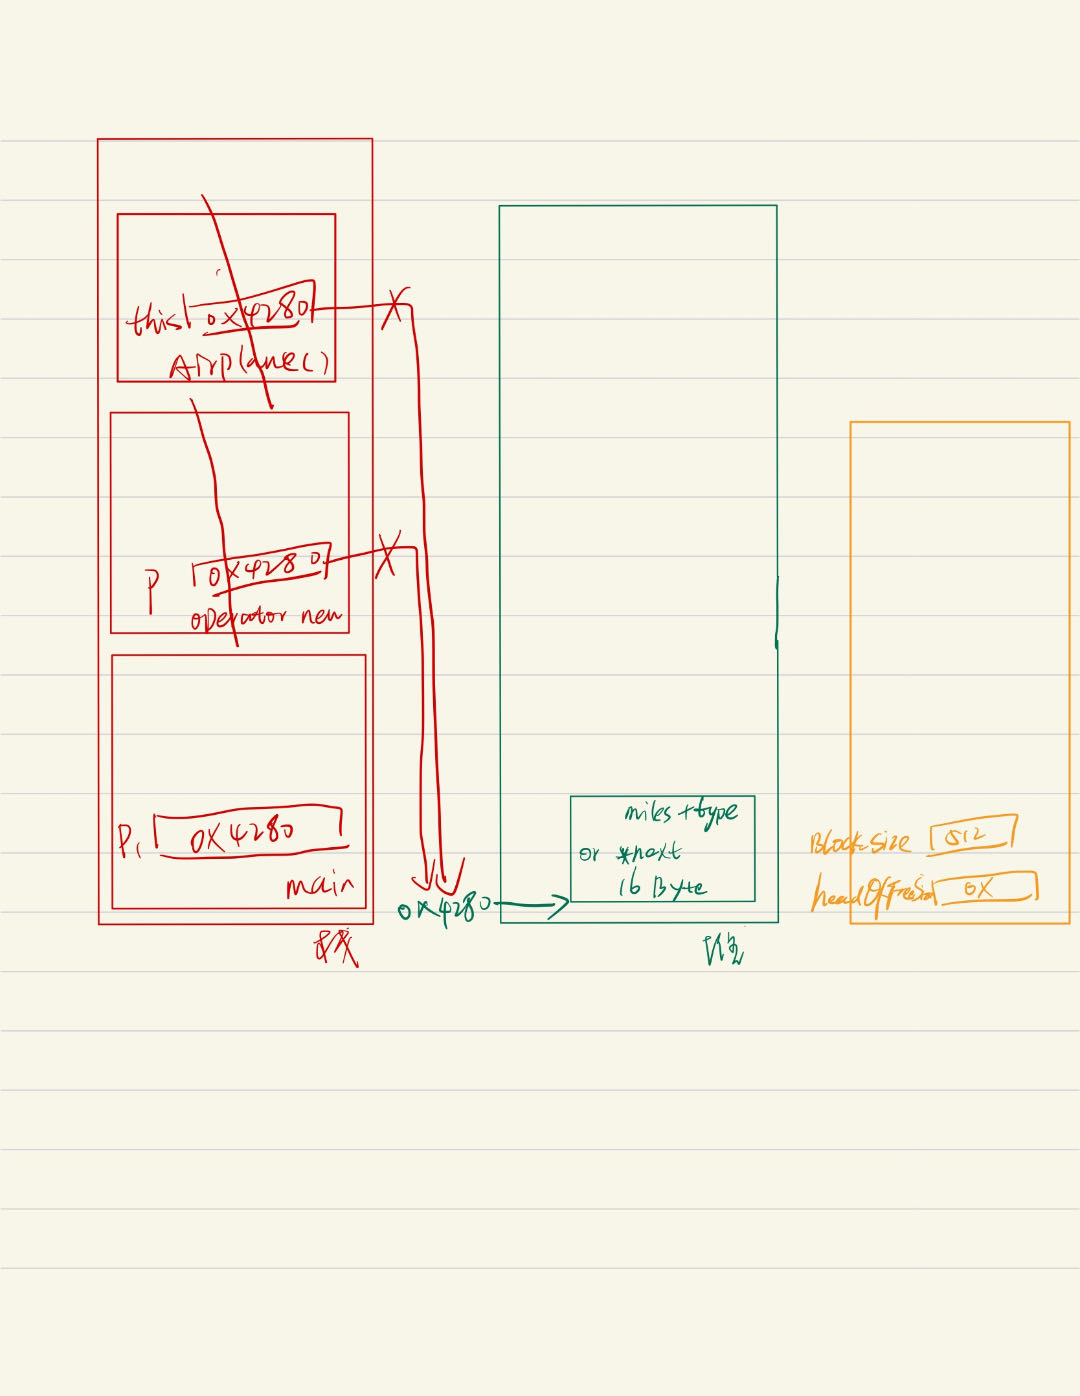 this 0x4280
Airplane()
P 0x4280
operator new
P1 0x4280
main
栈
0x4280
miles + type
or *next
16 Byte
堆
BlockSize 512
0X